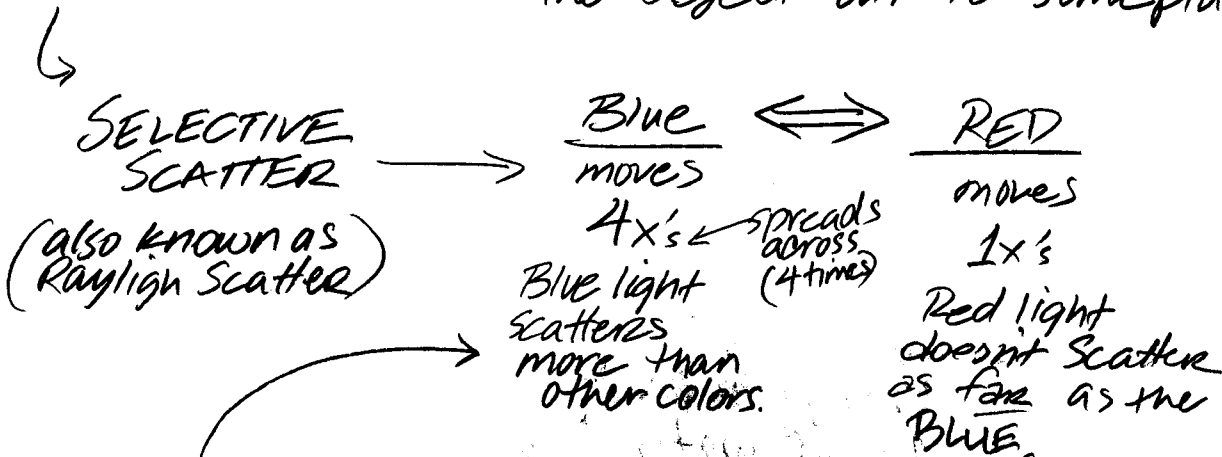 the object out to
SELECTIVE
SCATTER
(also known as
Rayligh Scatter)
Blue
moves
4x's
spreads
across
(4 times)
Blue light
scatters
more than
other colors.
RED
moves
1x's
Red light
doesn't Scatter
as far as the
BLUE